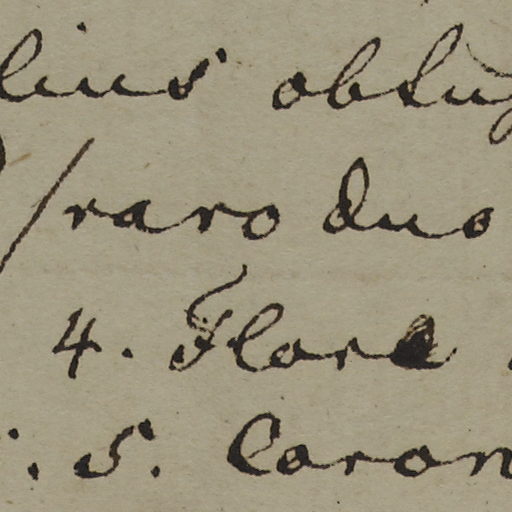 lius oblu
/raro duo
4. Flore
. 5. Coron